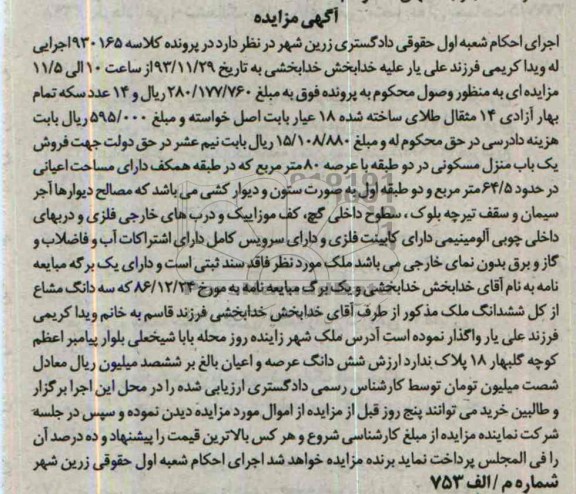 آگهی مزایده
اجرای احکام شعبه اول حقوقی دادگستری زرین شهر در نظر دارد در پرونده کلاسه ۹۳۰۱۶۵ اجرایی
له ویدا کریمی فرزند علی یار علیه خدابخش خدابخشی به تاریخ ۹۳/۱۱/۲۹ از ساعت ۱۰ الی ۱۱/۵
مزایده ای به منظور وصول محکوم به پرونده فوق به مبلغ ۲۸۰/۱۷۷/۷۶۰ ریال و ۱۴ عدد سکه تمام
بهار آزادی ۱۴ مثقال طلای ساخته شده ۱۸ عیار بابت اصل خواسته و مبلغ ۵۹۵/۰۰۰ ریال بابت
هزینه دادرسی در حق محکوم له و مبلغ ۱۵/۱۰۸/۸۸۰ ریال بابت نیم عشر در حق دولت جهت فروش
یک باب منزل مسکونی در دو طبقه با عرصه ۸۰ متر مربع که در طبقه همکف دارای مساحت اعیانی
در حدود ۶۴/۵ متر مربع و دو طبقه اول به صورت ستون و دیوار کشی می باشد که مصالح دیوارها آجر
سیمان و سقف تیرچه بلوک ، سطوح داخلی گچ، کف موزاییک و درب های خارجی فلزی و دربهای
داخلی چوبی آلومینیمی دارای کابینت فلزی و دارای سرویس کامل دارای اشتراکات آب و فاضلاب و
گاز و برق بدون نمای خارجی می باشد ملک مورد نظر فاقد سند ثبتی است و دارای یک برگه مبایعه
نامه به نام آقای خدابخش خدابخشی و یک برگ مبایعه نامه به مورخ ۸۶/۱۲/۲۴ که سه دانگ مشاع
از کل ششدانگ ملک مذکور از طرف آقای خدابخش خدابخشی فرزند قاسم به خانم ویدا کریمی
فرزند علی یار واگذار نموده است آدرس ملک شهر زاینده روز محله بابا شیخعلی بلوار پیامبر اعظم
کوچه گلبهار ۱۸ پلاک ندارد ارزش شش دانگ عرصه و اعیان بالغ بر ششصد میلیون ریال معادل
شصت میلیون تومان توسط کارشناس رسمی دادگستری ارزیابی شده را در محل این اجرا برگزار
و طالبین خرید می توانند پنج روز قبل از مزایده از اموال مورد مزایده دیدن نموده و سپس در جلسه
شرکت نماینده مزایده از مبلغ کارشناسی شروع و هر کس بالاترین قیمت را پیشنهاد و ده درصد آن
را فی المجلس پرداخت نماید برنده مزایده خواهد شد اجرای احکام شعبه اول حقوقی زرین شهر
شماره م / الف ۷۵۳